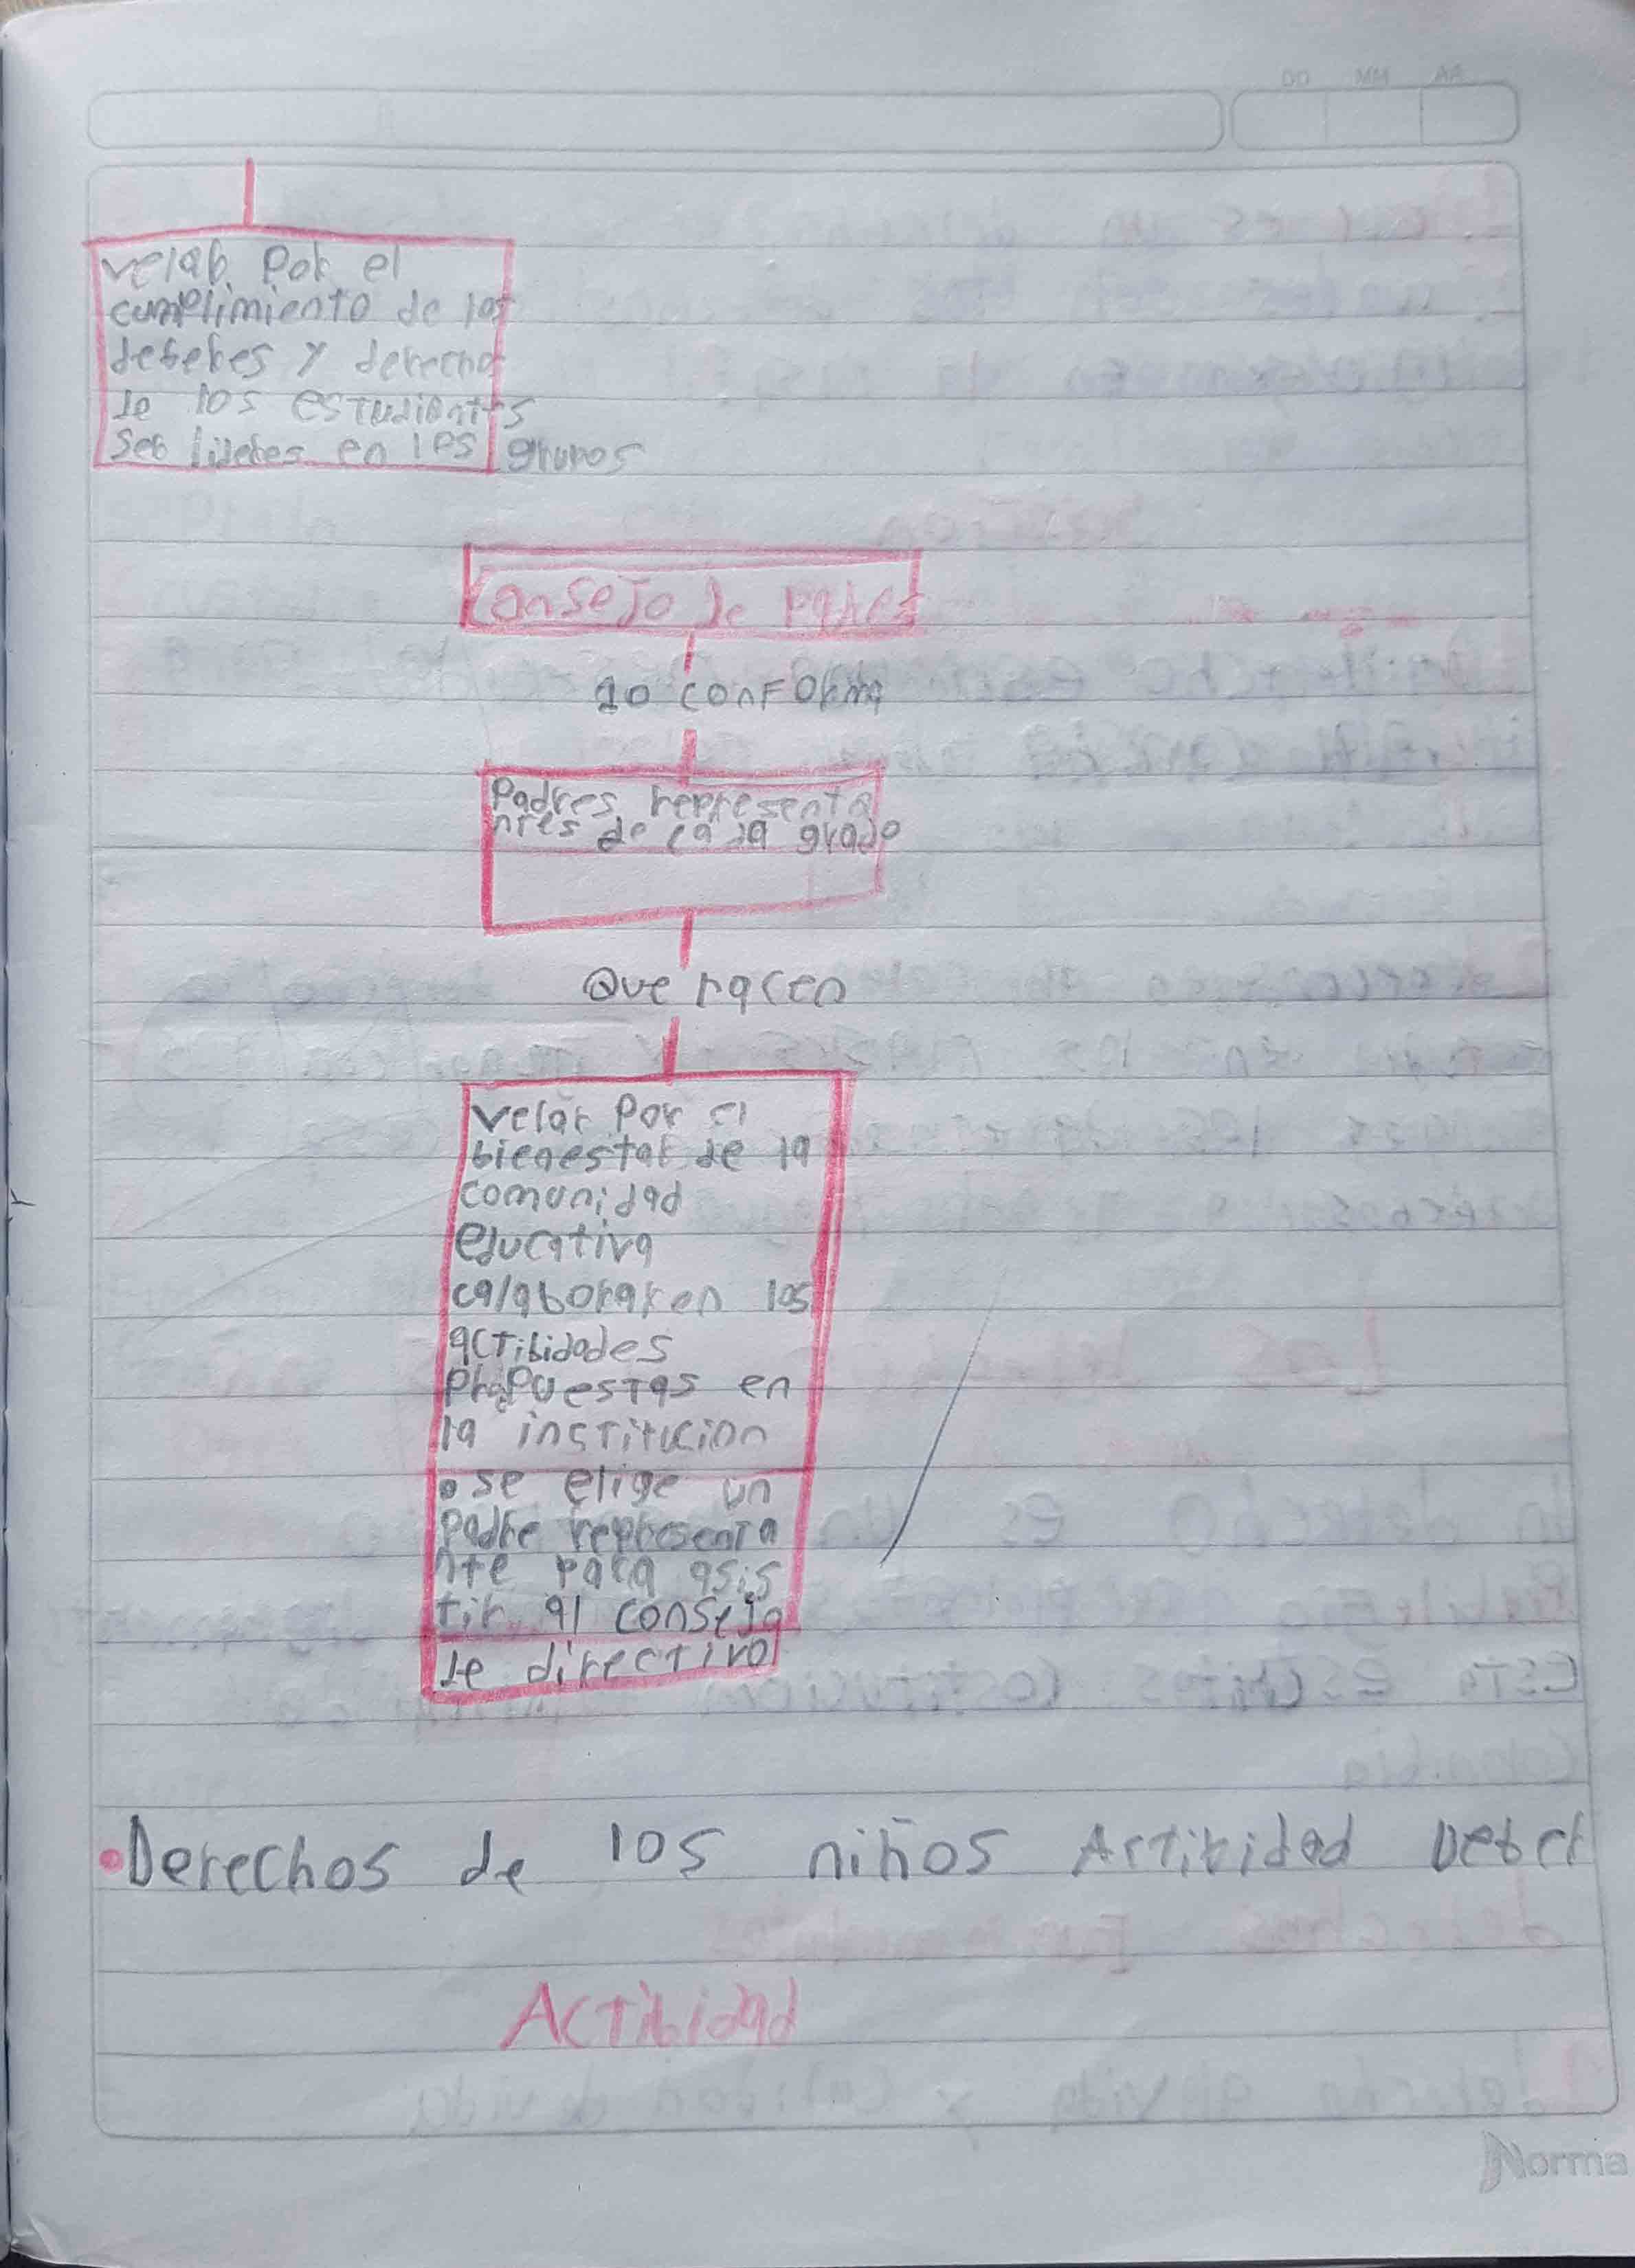 DD MM AA
velar por el
cumplimiento de los
deberes y derechos
de los estudiantes
ser lideres en los grupos
Consejo de padres
lo conforma
Padres representa
ntes de cada grado
Que hacen
velar por el
bienestar de la
comunidad
educativa
calaborar en los
actibidades
propuestas en
la institucion
• se elige un
padre representa
nte para asis
tir al consejo
de directivo
• Derechos de los niños Actibidad Deber
Actibidad
Norma